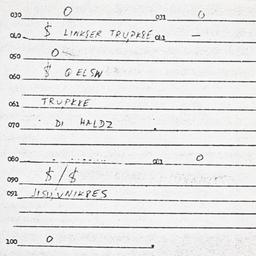 030 0 031 0
040 $ LINKSER TRUPKSE 041 -
050 0
060 $ GELSW
061 TRUPKKE
070 DI HALDZ
080 081 0
090 $/$
091
100 0